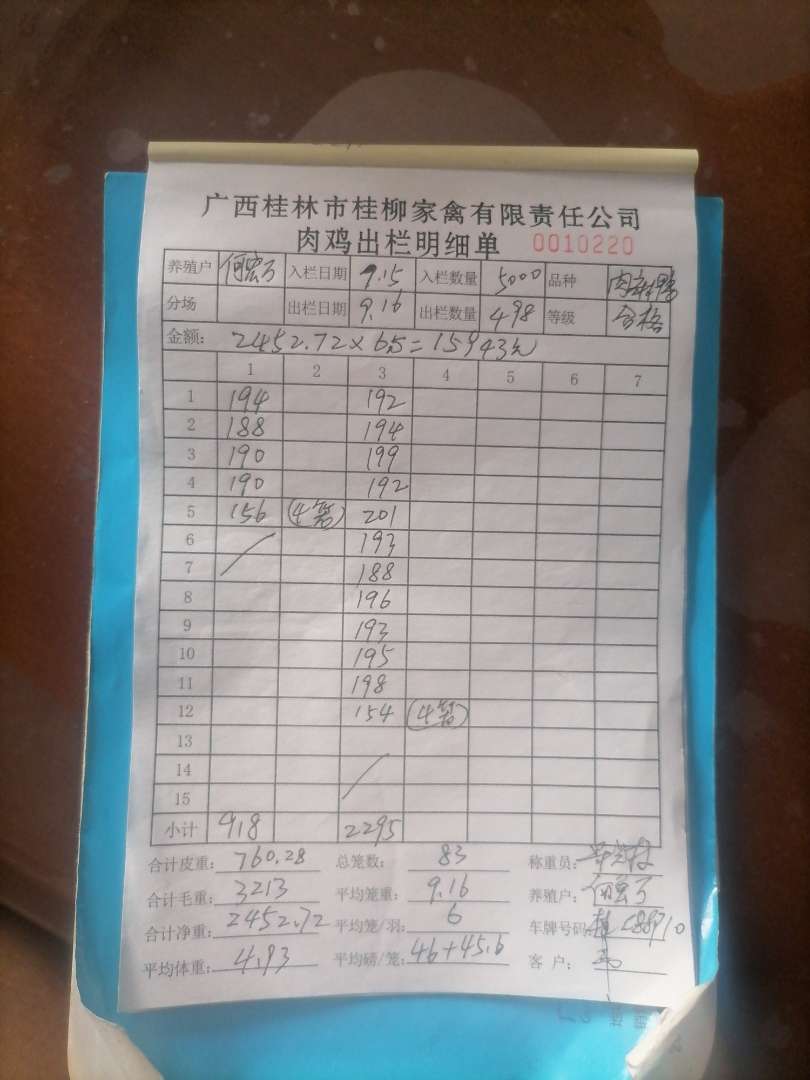 广西桂林市桂柳家禽有限责任公司
肉鸡出栏明细单 0010220
养殖户 何宏万 入栏日期 9.15 入栏数量 5000 品种
分场 出栏日期 9.16 出栏数量 498 等级 合格
金额: 2452.72×6.5=15943元
1 2 3 4 5 6 7
1 194 192
2 188 194
3 190 199
4 190 192
5 156 (4笼) 201
6 193
7 188
8 196
9 193
10 195
11 198
12 154 (4笼)
13
14
15
小计 918 2295
合计皮重: 760.28 总笼数: 83 称重员:
合计毛重: 3213 平均笼重: 9.16 养殖户: 何宏万
合计净重: 2452.72 平均笼/羽: 6 车牌号码:
平均体重: 4.93 平均磅/笼: 46+45.6 客户: